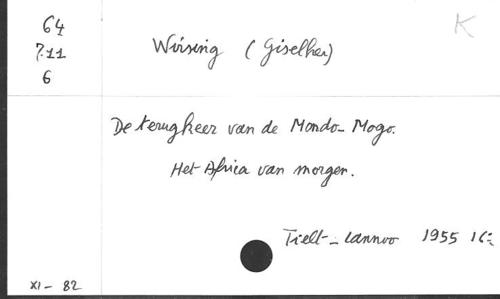 64
7.11
6
K
Wirsing (Giselher)
De terugkeer van de Mondo-Mogo.
Het Africa van morgen.
Tielt - Lannoo 1955 16=
XI - 82